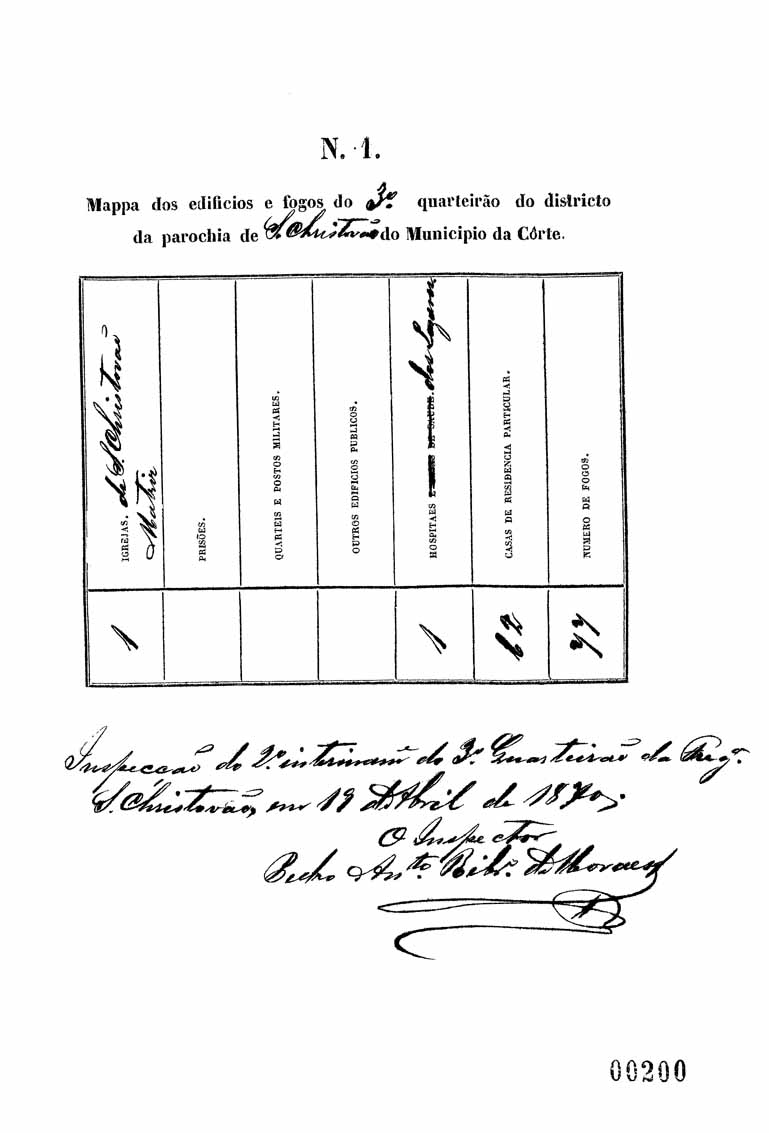 N. 1.
Mappa dos edificios e fogos do 3º quarteirão do districto
da parochia de S. Christovão do Municipio da Côrte.
IGREJAS. de S. Christovão
Matriz
PRISÕES.
QUARTEIS E POSTOS MILITARES.
OUTROS EDIFICIOS PUBLICOS.
HOSPITAES E CASAS DE SAUDE. dos Lazaros
CASAS DE RESIDENCIA PARTICULAR.
NUMERO DE FOGOS.
1 1 62 77
Inspecção do 2º do 3º Quarteirão da Freg.ª
S. Christovão, em 19 de Abril de 1870
O Inspector
Pedro Anto. Ribr. de Moraes
00200